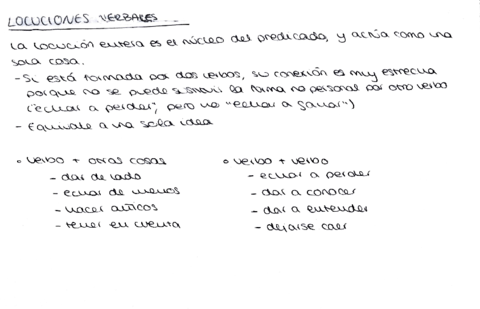 LOCUCIONES VERBALES
La locución entera es el núcleo del predicado, y actúa como una
sola cosa.
- Si está formada por dos verbos, su conexión es muy estrecha
porque no se puede sustituir la forma no personal por otro verbo
("echar a perder", pero no "echar a ganar")
- Equivale a una sola idea
◦ verbo + otras cosas
- dar de lado
- echar de menos
- hacer añicos
- tener en cuenta
◦ verbo + verbo
- echar a perder
- dar a conocer
- dar a entender
- dejarse caer